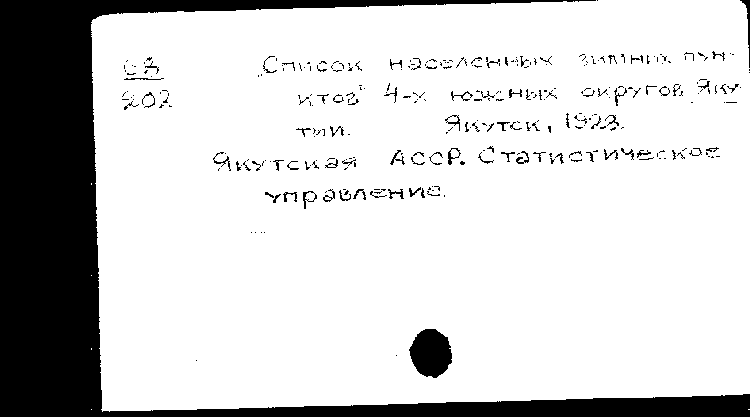 СЗ Список населенных зимних пун-
202 ктов 4-х южных округов Яку-
тии. Якутск, 1923.
Якутская АССР. Статистическое
управление.